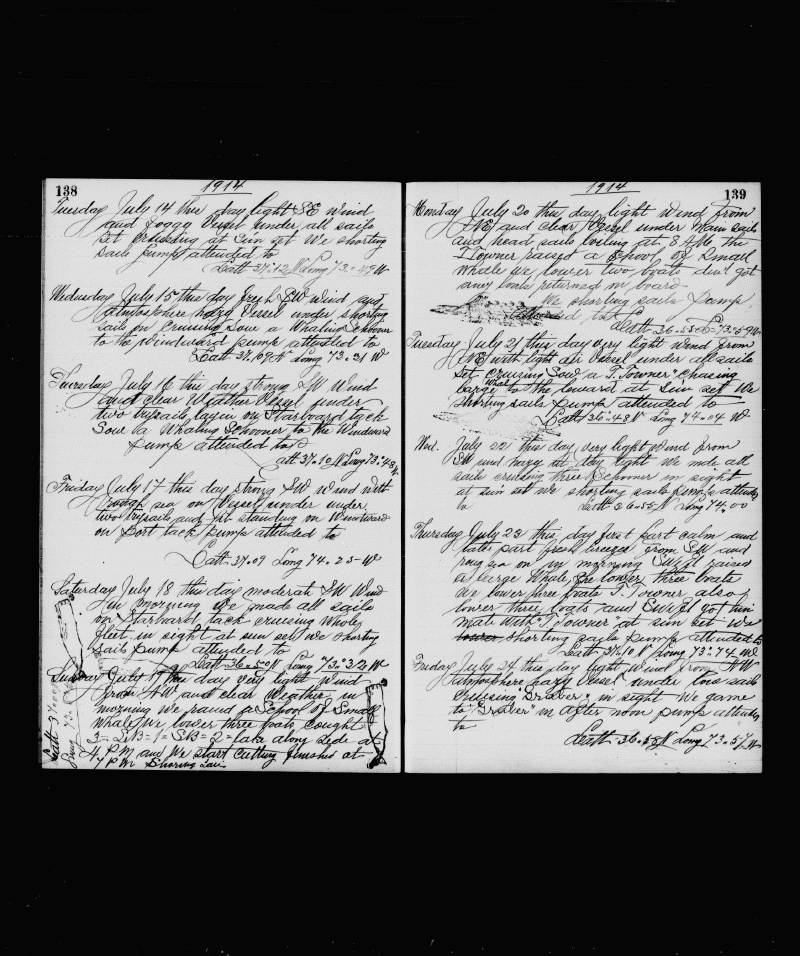 138
1914
Tuesday July 14 this day light SE wind
and foggy Vessel under all sails
set cruising at sun set We shorting
sails pump attended to
Latt 37.12 N Long 73.49 W
Wednesday July 15 this day fresh SW wind and
hazy Vessel under shorting
sails on cruising Sow a Whaling Schooner
to the windward pump attended to
Latt 37.09 N Long 73.31 W
Thursday July 16 this day strong SW Wind
and clear Weather Vessel under
two trysails layin on Starboard tack
Sow a Whaling Schooner to the Windward
pump attended to
Latt 37.10 N Long 73.48 W
Friday July 17 this day strong SW wind with
rough sea on Vessel under under
two trysails and standing on Windward
on port tack pump attended to
Latt 37.09 Long 74.25 W
Saturday July 18 this day moderate SW Wind
in morning We made all sails
on Starboard tack cruising Whole
fleet in sight at sun set we shorting
sails pump attended to
Latt 36.50 N Long 73.32 W
Sunday July 19 this day very light wind
from NW and clear Weather in
morning We raised a School of Small
Whale We lower three boats cought
3 = = 1 = SB = 2 = take along side at
4 PM and We start cutting finished at
7 PM
Latt 3
Long 73
139
1914
Monday July 20 this day light Wind from
NE and clear Vessel under main sails
and head sails boiling at 8 AM the
T Towner raised a School of small
Whale We lower two boats din't got
any boats returned in board
We shorting sails pump
attended to
Latt 36.55 Lo 73.59 W
Tuesday July 21 this day very light wind from
NE with light air Vessel under all sails
set cruising Sow a T. Towner chasing
large whale to the leward at sun set We
shorting sails pump attended to
Latt 36.48 N Long 74.04 W
Wed. July 22 this day very light wind from
SW and hazy at day light We made all
sails cruising three Schooner in sight
at sun set we shorting sails pump attended
to Latt 36.55 N Long 74.00
Thursday July 23 this day first part calm and
later part fresh breeze from SW and
roug sea on in morning raised
a large Whale he lower three boats
We lower three boats T. Towner also
lower three boats and got him
mate with T Towner at sun set We
lower shorting sails pump attended to
Latt 37.10 N Long 73.74 W
Friday July 24 this day light Wind from NW
hazy Vessel under tow sail
cruising Draver in sight We game
to Draver in after noon pump attended
to
Latt 36.58 N Long 73.57 W